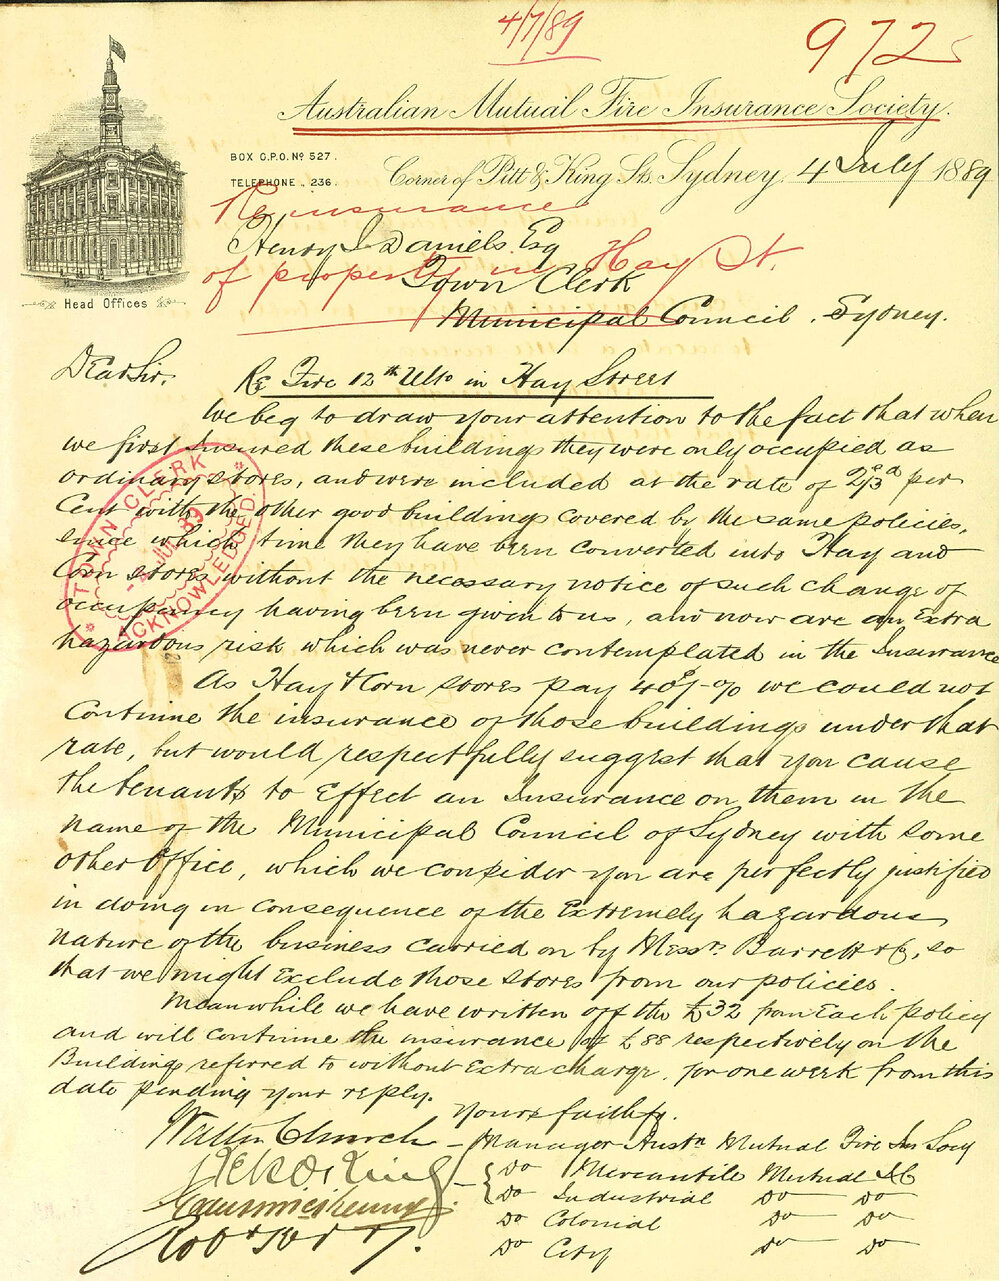 4/7/89
972
Australian Mutual Fire Insurance Society.
BOX G.P.O. No 527.
TELEPHONE . 236.
Corner of Pitt & King Sts. Sydney, 4 July 1889
Head Offices
Re insurance
of property in Hay St.
Henry J. Daniels Esq
Town Clerk
Municipal Council, Sydney.
Dear Sir.
Re Fire 12th Ulto in Hay Street
We beg to draw your attention to the fact that when
we first Insured these buildings they were only occupied as
ordinary stores, and were included at the rate of 2/3d per
Cent with the other good buildings covered by the same policies,
since which time they have been converted into Hay and
Corn stores without the necessary notice of such change of
occupancy having been given to us, and now are an Extra
hazardous risk which was never contemplated in the Insurance
TOWN CLERK
4 JUL 89
ACKNOWLEDGED.
As Hay & Corn stores pay 40s/- % we could not
continue the insurance of those buildings under that
rate, but would respectfully suggest that you cause
the tenants to Effect an Insurance on them in the
name of the Municipal Council of Sydney with some
other Office, which we consider you are perfectly justified
in doing in consequence of the Extremely hazardous
nature of the business carried on by Messrs. Barrett & Co, so
that we might Exclude those stores from our policies.
Meanwhile we have written off the £32 from Each policy
and will continue the insurance of £88 respectively on the
Buildings referred to without Extra charge, for one week from this
date pending your reply.
Yours faithfy.
Walter Church - Manager Austn Mutual Fire Ins Socy
Do Mercantile Mutual do
Do Industrial Do Do
Do Colonial Do Do
Do City Do Do